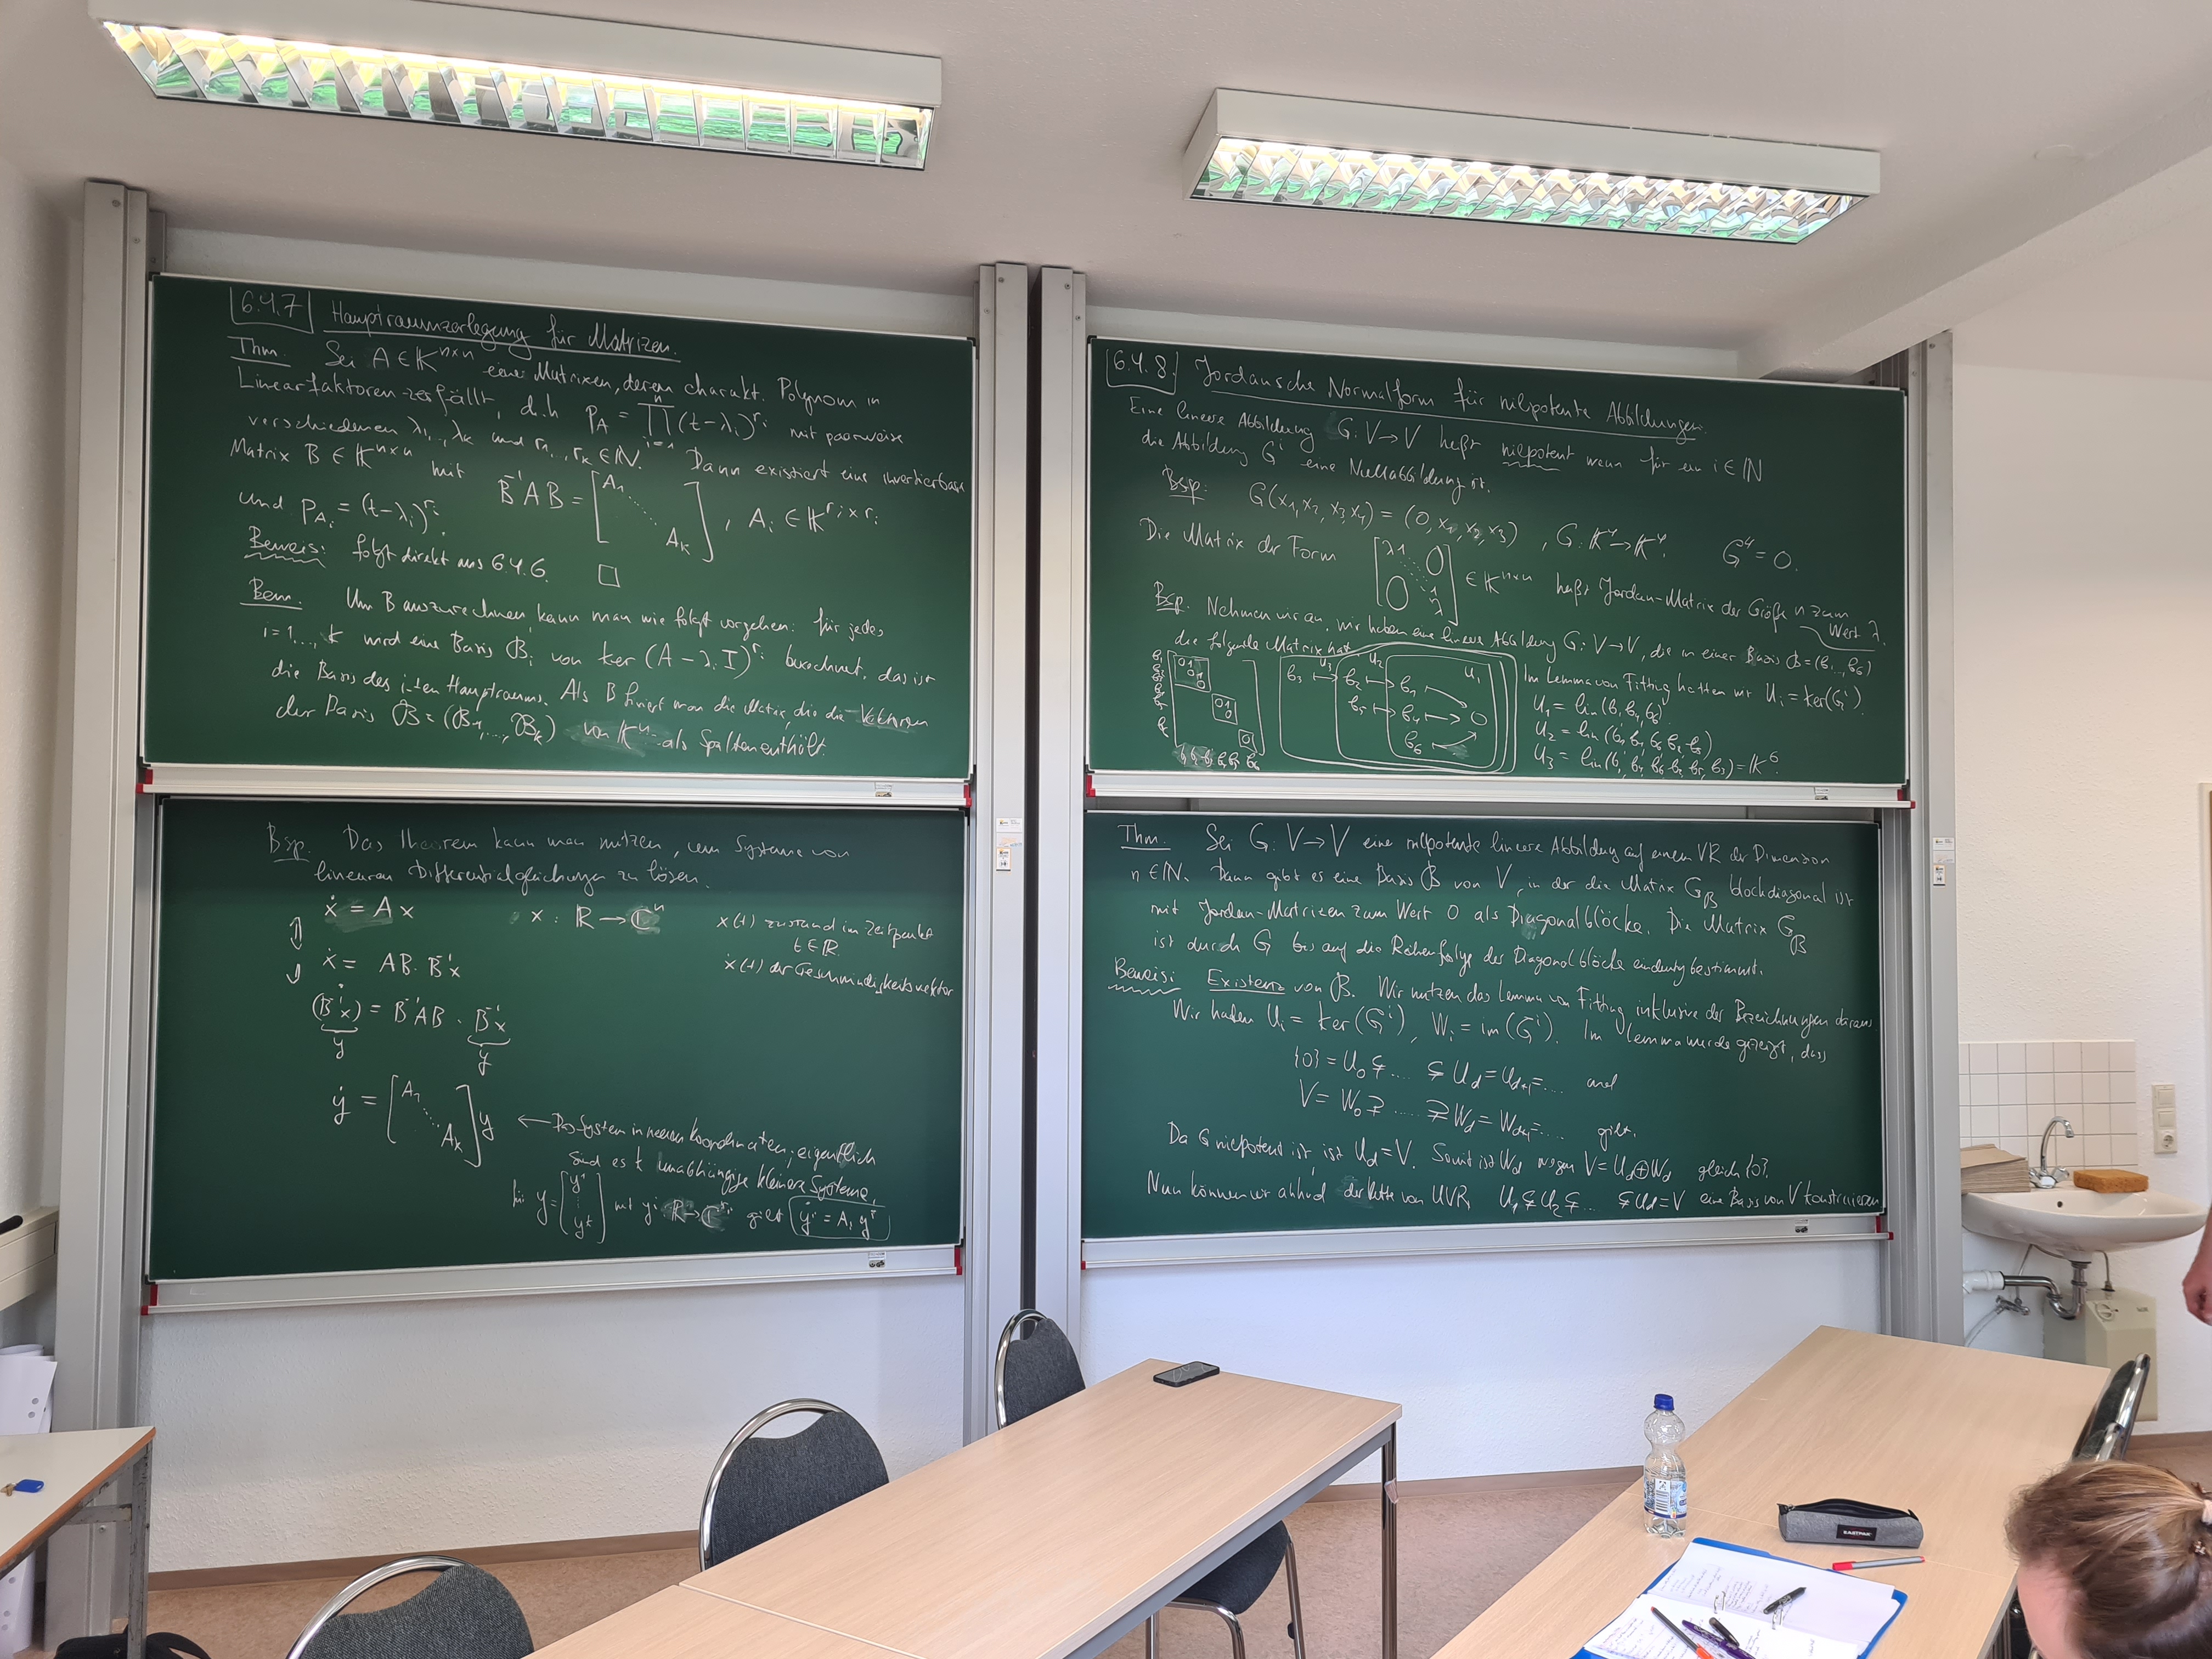 6.4.7 Hauptraumzerlegung für Matrizen.
Thm. Sei A ∈ K^{n×n} eine Matrixen, deren charakt. Polynom in
Linearfaktoren zerfällt, d.h p_A = ∏_{i=1}^{n} (t-λ_i)^{r_i} mit paarweise
verschiedenen λ_1,..,λ_k und r_1,..,r_k ∈ IN. Dann existiert eine invertierbare
Matrix B ∈ K^{n×n} mit B^{-1}AB = [A_1 ⋱ A_k], A_i ∈ K^{r_i×r_i}
und p_{A_i} = (t-λ_i)^{r_i}.
Beweis: folgt direkt aus 6.4.6. □
Bem. Um B auszurechnen kann man wie folgt vorgehen: für jedes
i=1,..,k wird eine Basis B_i von ker (A-λ_i I)^{r_i} berechnet, das ist
die Basis des i-ten Hauptraums. Als B fixiert man die Matrix, die die Vektoren
der Basis B=(B_1,...,B_k) von K^n als Spalten enthält.
Bsp. Das Theorem kann man nutzen, um Systeme von
linearen Differentialgleichungen zu lösen.
ẋ = Ax , x : R → C^n x(t) zustand im Zeitpunkt
t ∈ R
⇕ ẋ = AB·B^{-1}x ẋ(t) der Geschwindigkeitsvektor
(B^{-1}x)˙ = B^{-1}AB · B^{-1}x
y y
ẏ = [A_1 ⋱ A_k] y ← Das System in neuen Koordinaten; eigentlich
sind es k unabhängige kleinere Systeme,
für y = [y^1 ⋮ y^k] mit y^i: R→C^{r_i} gilt ẏ^i = A_i y^i
6.4.8. Jordansche Normalform für nilpotente Abbildungen.
Eine lineare Abbildung G: V→V heißt nilpotent wenn für ein i∈IN
die Abbildung G^i eine Nullabbildung ist.
Bsp: G(x_1,x_2,x_3,x_4) = (0,x_1,x_2,x_3), G: K^4→K^4. G^4=0.
Die Matrix der Form [λ 1 0 ⋱ 1 0 λ] ∈ K^{n×n} heißt Jordan-Matrix der Größe n zum
Wert λ.
Bsp. Nehmen wir an, wir haben eine lineare Abbildung G: V→V, die in einer Basis B=(b_1,..,b_6)
die folgende Matrix hat.
Im Lemma von Fitting hatten wir U_i = ker(G^i).
b_1 b_2 b_3 b_4 b_5 b_6
0 1
0 1
0
0 1
0
0
U_3 U_2 U_1
b_3 ↦ b_2 ↦ b_1
b_5 ↦ b_4 ↦ 0
b_6
U_1 = lin(b_1,b_4,b_6)
U_2 = lin(b_1,b_4,b_6,b_2,b_5)
U_3 = lin(b_1,b_4,b_6,b_2,b_5,b_3) = K^6.
Thm. Sei G: V→V eine nilpotente lineare Abbildung auf einem VR der Dimension
n ∈ IN. Dann gibt es eine Basis B von V, in der die Matrix G_B blockdiagonal ist
mit Jordan-Matrizen zum Wert 0 als Diagonalblöcke. Die Matrix G_B
ist durch G bis auf die Reihenfolge der Diagonalblöcke eindeutig bestimmt.
Beweis: Existenz von B. Wir nutzen das Lemma von Fitting inklusive der Bezeichnungen daraus.
Wir haben U_i = ker(G^i), W_i = im(G^i). Im Lemma wurde gezeigt, dass
{0} = U_0 ⊊ .... ⊊ U_d = U_{d+1} = ... und
V = W_0 ⊋ ..... ⊋ W_d = W_{d+1} = .... gilt.
Da G nilpotent ist, ist U_d = V. Somit ist W_d wegen V = U_d ⊕ W_d gleich {0}.
Nun können wir anhand der Kette von UVR U_1 ⊊ U_2 ⊊ ... ⊊ U_d = V eine Basis von V konstruieren
EASTPAK